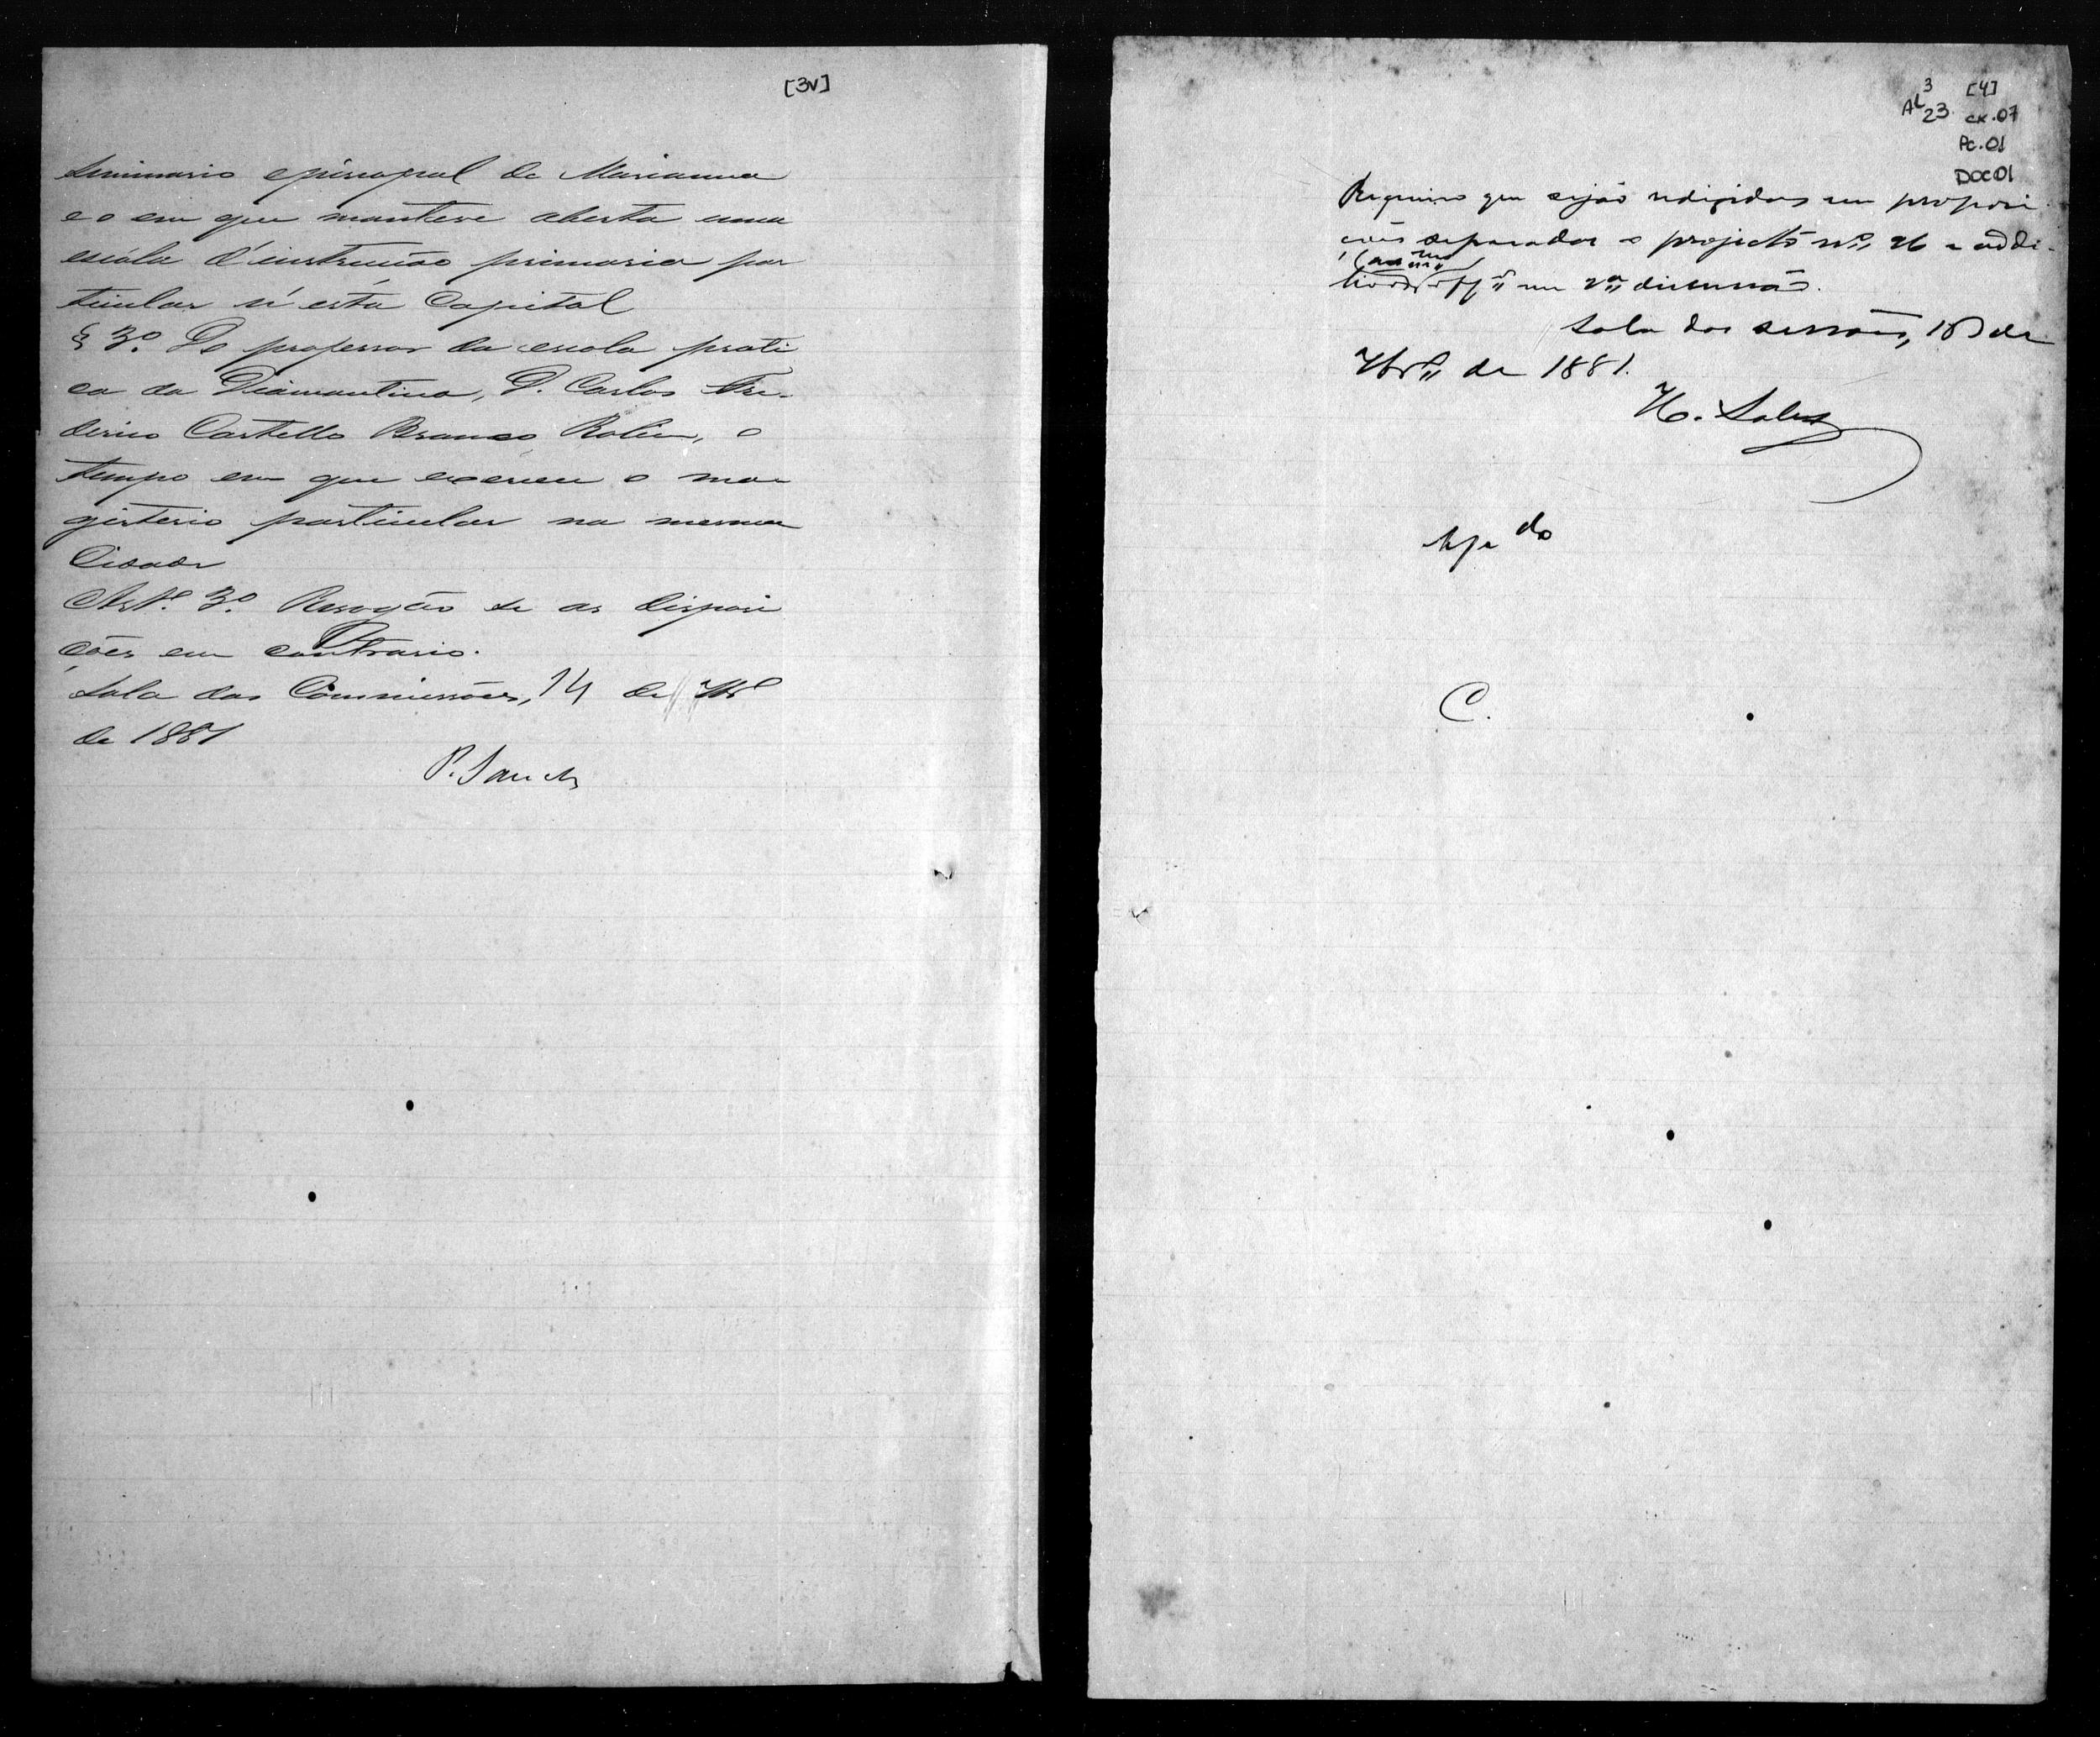 [3v]
Seminario episcopal de Marianna
e o em que manteve aberta uma
escóla d'instrucção primaria par
ticular n'esta Capital
§ 3º. Do professor da escola prati
ca da Diamantina, D. Carlos Fre-
derico Castello Branco Rolim, o
tempo em que exerceu o ma
gisterio particular na mesma
Cidade
Artº. 3º. Revogão se as disposi
ções em contrario.
Sala das Commissões, 14 de 7bro
de 1881
P. Sanches
[4]
AL 3
23 cx.07
Pc.01
DOC01
Requeiro que sejão redigidos em proposi
ções separadas o projecto nº 26 e addi-
tivos em 2ª discussão.
Sala das sessões, 18 de
7bro de 1881.
H. Salles
C.